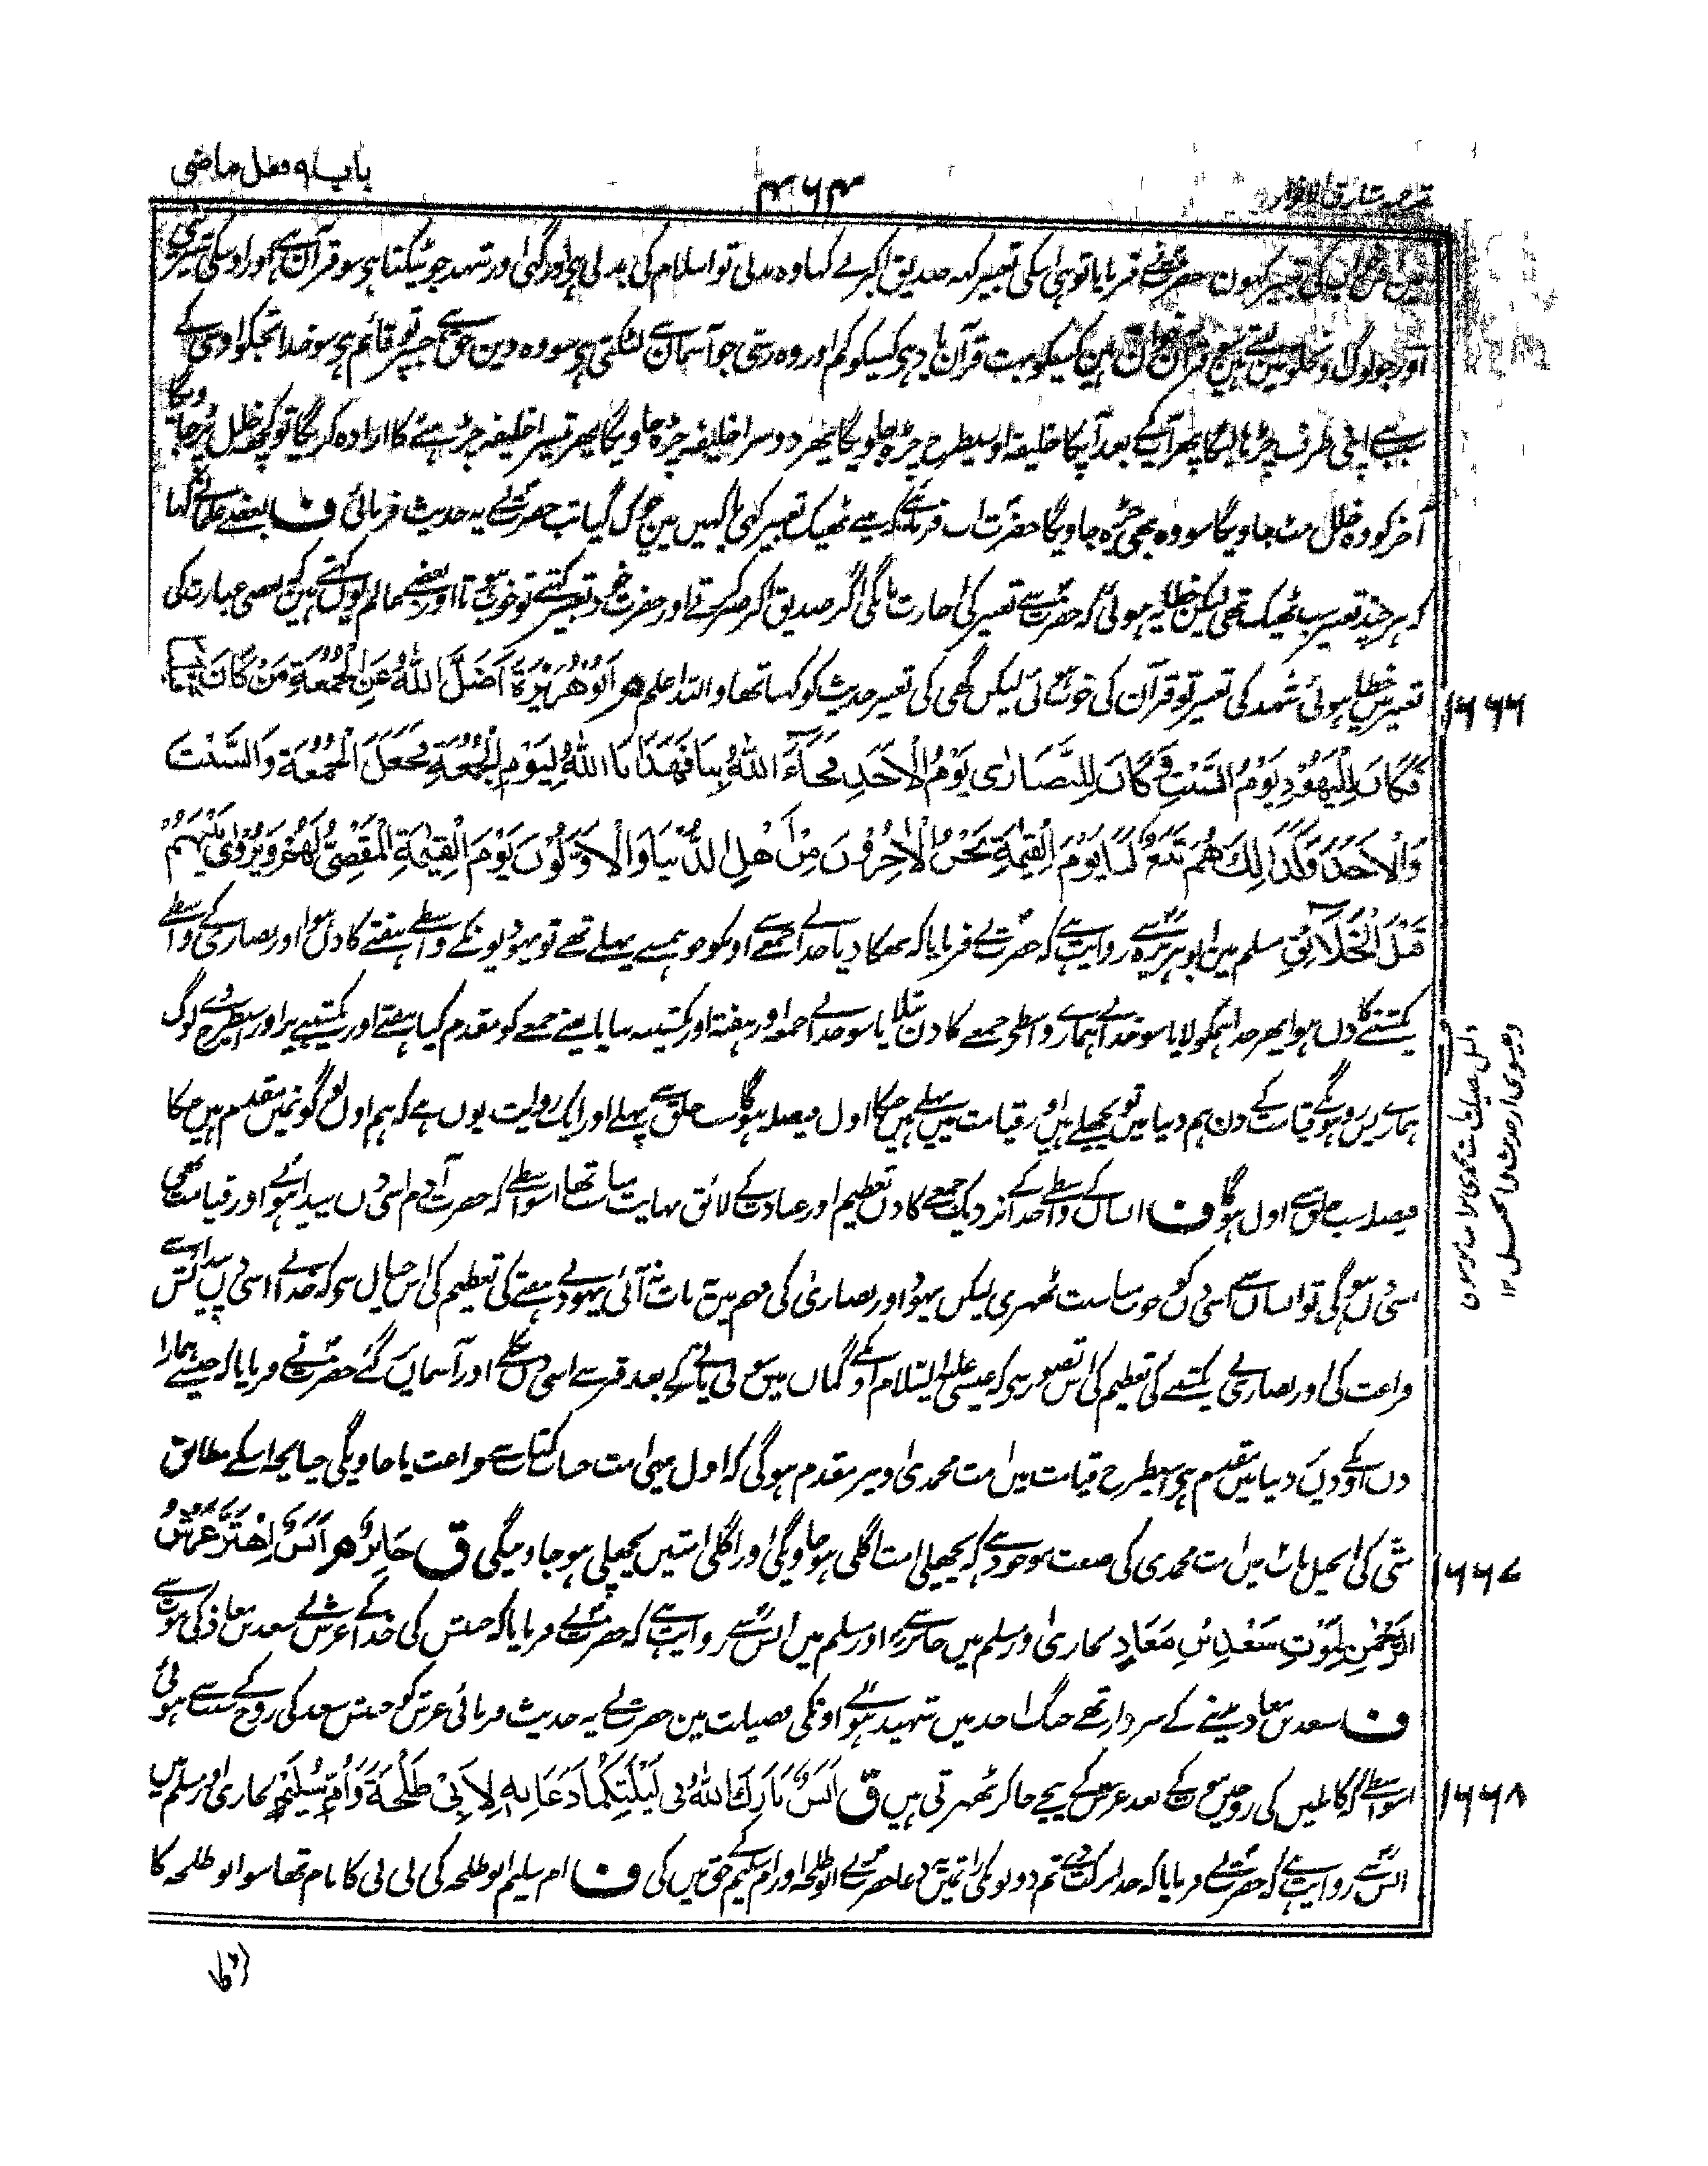 ترجمہ مشارق الانوار
۴۶۴
باب ۹ فعل ماضی
کی تعبیر کہون حضرت نے فرمایا تو ہی اسکی تعبیر کہہ صدیق اکبر نے کہا وہ بدلی تو اسلام کی بدلی ہی اور گہی اور شہد جو ٹپکتا ہی سو قرآن ہی اور اوسکی شیرینی
اور جو لوگ اوسکو لیتے ہین سو قرآن خوان ہین کسیکو بہت قرآن یاد ہی کسیکو کم اور وہ رسی جو آسمان سے لٹکتی ہی سو وہ دین حق ہے جسپر تو قائم ہی سو خدا تجکو اوسی کے
سبب سے اپنی طرف چڑہا لیگا پھر آپکے بعد آپکا خلیفہ اوسیطرح چڑہ جاویگا پھر دوسرا خلیفہ چڑہ جاویگا پھر تیسرا خلیفہ چڑہنے کا ارادہ کریگا تو کچھ خلل پڑ جاویگا
آخر کو وہ خلل مٹ جاویگا سو وہ بھی چڑہ جاویگا حضرت اب فرمائیے کہ مینے ٹھیک تعبیر کہی یا کہیں مین چوک گیا تب حضرت نے یہ حدیث فرمائی ف بعضے علما نے کہا
کہ ہر چند تعبیر سب ٹھیک تھی لیکن خطا یہ ہوئی کہ حضرت سے تعبیر کی اجازت مانگی اگر صدیق اکبر صبر کرتے اور حضرت خود تعبیر کہتے تو خوب تھا اور بعضے عالم یوں کہتے ہیں کہ بعضی عبارت کی
تعبیر میں خطا ہوئی شہد کی تعبیر تو قرآن کی خوب بنائی لیکن گھی کی تعبیر حدیث کو کہنا تھا واللہ اعلم هو اَبُوْهُرَيْرَةَ اَضَلَّ اللهُ عَنِ الْجُمُعَةِ مَنْ كَانَ قَبْلَنَا
۱۶۶۶
فَكَانَ لِلْيَهُوْدِ يَوْمُ السَّبْتِ وَكَانَ لِلنَّصَارٰى يَوْمُ الْاَحَدِ فَجَآءَ اللهُ بِنَا فَهَدَانَا اللهُ لِيَوْمِ الْجُمُعَةِ فَجَعَلَ الْجُمُعَةَ وَالسَّبْتَ
وَالْاَحَدَ وَكَذٰلِكَ هُمْ تَبَعٌ لَنَا يَوْمَ الْقِيٰمَةِ نَحْنُ الْاٰخِرُوْنَ مِنْ اَهْلِ الدُّنْيَا وَالْاَوَّلُوْنَ يَوْمَ الْقِيٰمَةِ الْمَقْضِيُّ لَهُمْ وَيُرْوٰى بَيْنَهُمْ
قَبْلَ الْخَلَآئِقِ مسلم مین ابو ہریرہ سے روایت ہے کہ حضرت نے فرمایا کہ بھکا دیا خدا نے جمعے سے اونکو جو ہمسے پہلے تھے تو یہودیونکے واسطے ہفتے کا دن ہوا اور نصاری کے واسطے
یکشنبے کا دن ہوا پھر خدا ہمکو لایا سو خدا نے ہمارے واسطے جمعے کا دن بتلایا سو خدا نے جمعہ اور ہفتہ اور یکشنبہ بنایا یعنے جمعے کو مقدم کیا ہفتے اور یکشنبے پر اور اسیطرح وے لوگ
ہمارے پس رو ہونگے قیامت کے دن ہم دنیا میں تو پچھلے ہیں اور قیامت میں پہلے ہیں جنکا اول فیصلہ ہوگا سب خلق سے پہلے اور ایک روایت یوں ہے کہ ہم اول لوگونمیں مقدم ہیں جنکا
فیصلہ سب خلق سے اول ہوگا ف انسان کے واسطے خدا کے نزدیک جمعے کا دن تعظیم اور عبادت کے لائق نہایت مناسب تھا اسواسطے کہ حضرت آدم اسی دن پیدا ہوئے اور قیامت بھی
اسی دن ہوگی تو انسان سے اسی دن کو خوب مناسبت ٹھہری لیکن یہود اور نصاری کی فہم میں یہ بات نہ آئی یہود نے ہفتے کی تعظیم کی اس خیال سے کہ خدا نے اسی دن پیدائش سے
فراغت کی اور نصاری نے یکشنبے کی تعظیم کی اس تصور سے کہ عیسی علیہ السلام اونکے گمان میں سولی پانے کے بعد قبر سے اسی دن نکلے اور آسمان پر گئے حضرت نے فرمایا کہ جیسے ہمارا
دن اونکے دن پر دنیا میں مقدم ہی اسیطرح قیامت میں امت محمدی اونپر مقدم ہوگی کہ اول یہی امت حساب کتاب سے فراغت پا جاویگی چنانچہ اسکے مطابق
متی کی انجیل میں امت محمدی کی صفت موجود ہے کہ پچھلی امت اگلی ہو جاویگی اور اگلی امتیں پچھلی ہو جاوینگی ق جَابِرٌ هو اَنَسٌ اِهْتَزَّ عَرْشُ
۱۶۶۷
الرَّحْمٰنِ لِمَوْتِ سَعْدِ بْنِ مَعَاذٍ بخاری اور مسلم میں جابر سے اور مسلم میں انس سے روایت ہے کہ حضرت نے فرمایا کہ جنبش کی خدا کے عرش نے سعد بن معاذ کی موت سے
ف سعد بن معاذ مدینے کے سردار تھے جنگ احد میں شہید ہوئے اونکی فضیلت مین حضرت نے یہ حدیث فرمائی عرش کو جنبش سعد کی روح کے سبب سے ہوئی
اسواسطے کہ کاملین کی روحیں موت کے بعد عرش کے نیچے جا کر ٹھہرتی ہیں ق اَنَسٌ بَارَكَ اللهُ فِي لَيْلَتِكُمَا دَعَا بِهٖ لِاَبِيْ طَلْحَةَ وَاُمِّ سُلَيْمٍ بخاری اور مسلم میں
۱۶۶۸
انس سے روایت ہے کہ حضرت نے فرمایا کہ خدا برکت دے تم دونوکی رات میں یہ دعا حضرت نے ابو طلحہ اور ام سلیم کے حق میں کی ف ام سلیم ابو طلحہ کی بی بی کا نام تھا سو ابو طلحہ کا